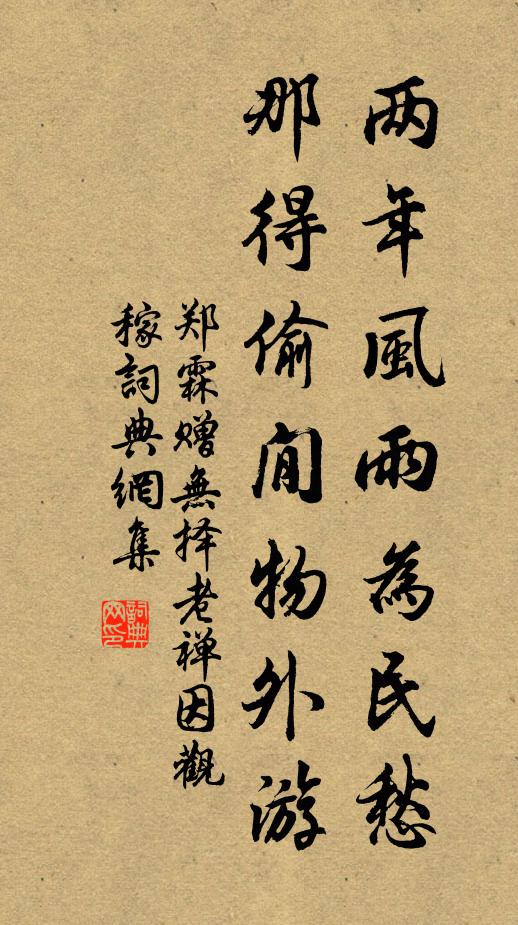 两年風雨為民愁
那得偷閒物外游
郑霖赠無择老禅因觀
稼詞典網集
詞典网印